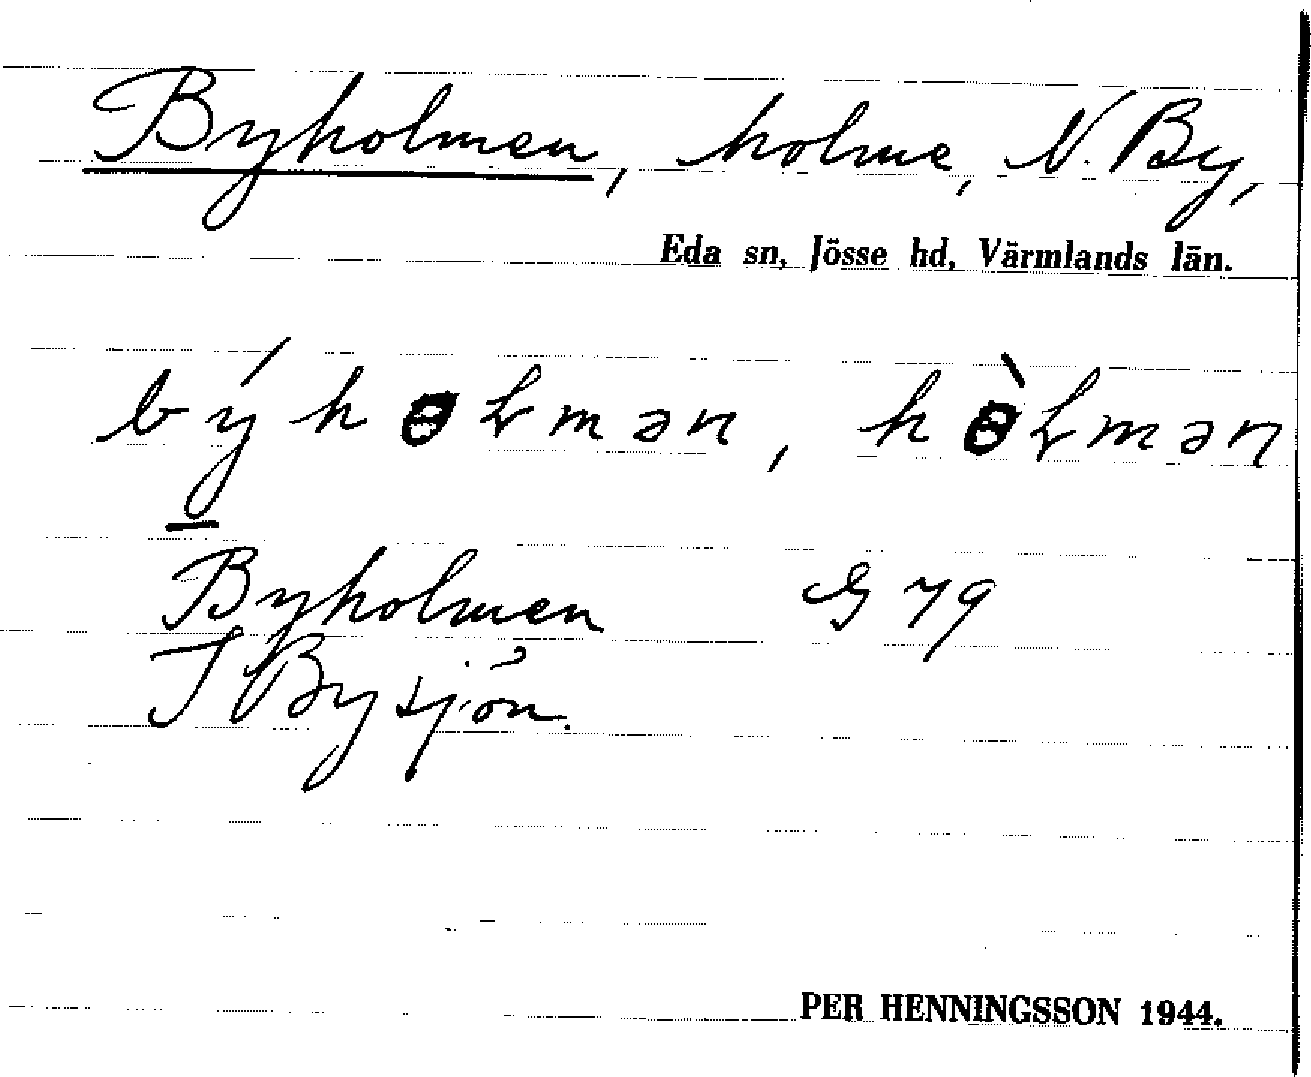 Byholmen, holme, N. By,
Eda sn, Jösse hd, Värmlands län.
býhɵɫmən, hɵ̀ɫmən
Byholmen G 79
I Bysjön.
PER HENNINGSSON 1944.